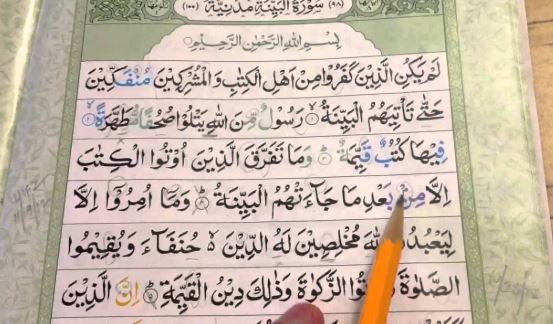 (٩٨) سُوْرَةُ الْبَيِّنَةِ مَدَنِيَّةٌ (١٠٠)
بِسْمِ اللهِ الرَّحْمٰنِ الرَّحِيْمِ
لَمْ يَكُنِ الَّذِيْنَ كَفَرُوْا مِنْ اَهْلِ الْكِتٰبِ وَالْمُشْرِكِيْنَ مُنْفَكِّيْنَ
حَتّٰى تَأْتِيَهُمُ الْبَيِّنَةُ ۙ۝١ رَسُوْلٌ مِّنَ اللهِ يَتْلُوْا صُحُفًا مُّطَهَّرَةً ۙ۝٢
فِيْهَا كُتُبٌ قَيِّمَةٌ ۝٣ وَمَا تَفَرَّقَ الَّذِيْنَ اُوْتُوا الْكِتٰبَ
اِلَّا مِنْۢ بَعْدِ مَا جَآءَتْهُمُ الْبَيِّنَةُ ۝٤ وَمَآ اُمِرُوْٓا اِلَّا
لِيَعْبُدُوا اللهَ مُخْلِصِيْنَ لَهُ الدِّيْنَ ۙ۬ حُنَفَآءَ وَيُقِيْمُوا
الصَّلٰوةَ الزَّكٰوةَ وَذٰلِكَ دِيْنُ الْقَيِّمَةِ ۝٥ اِنَّ الَّذِيْنَ